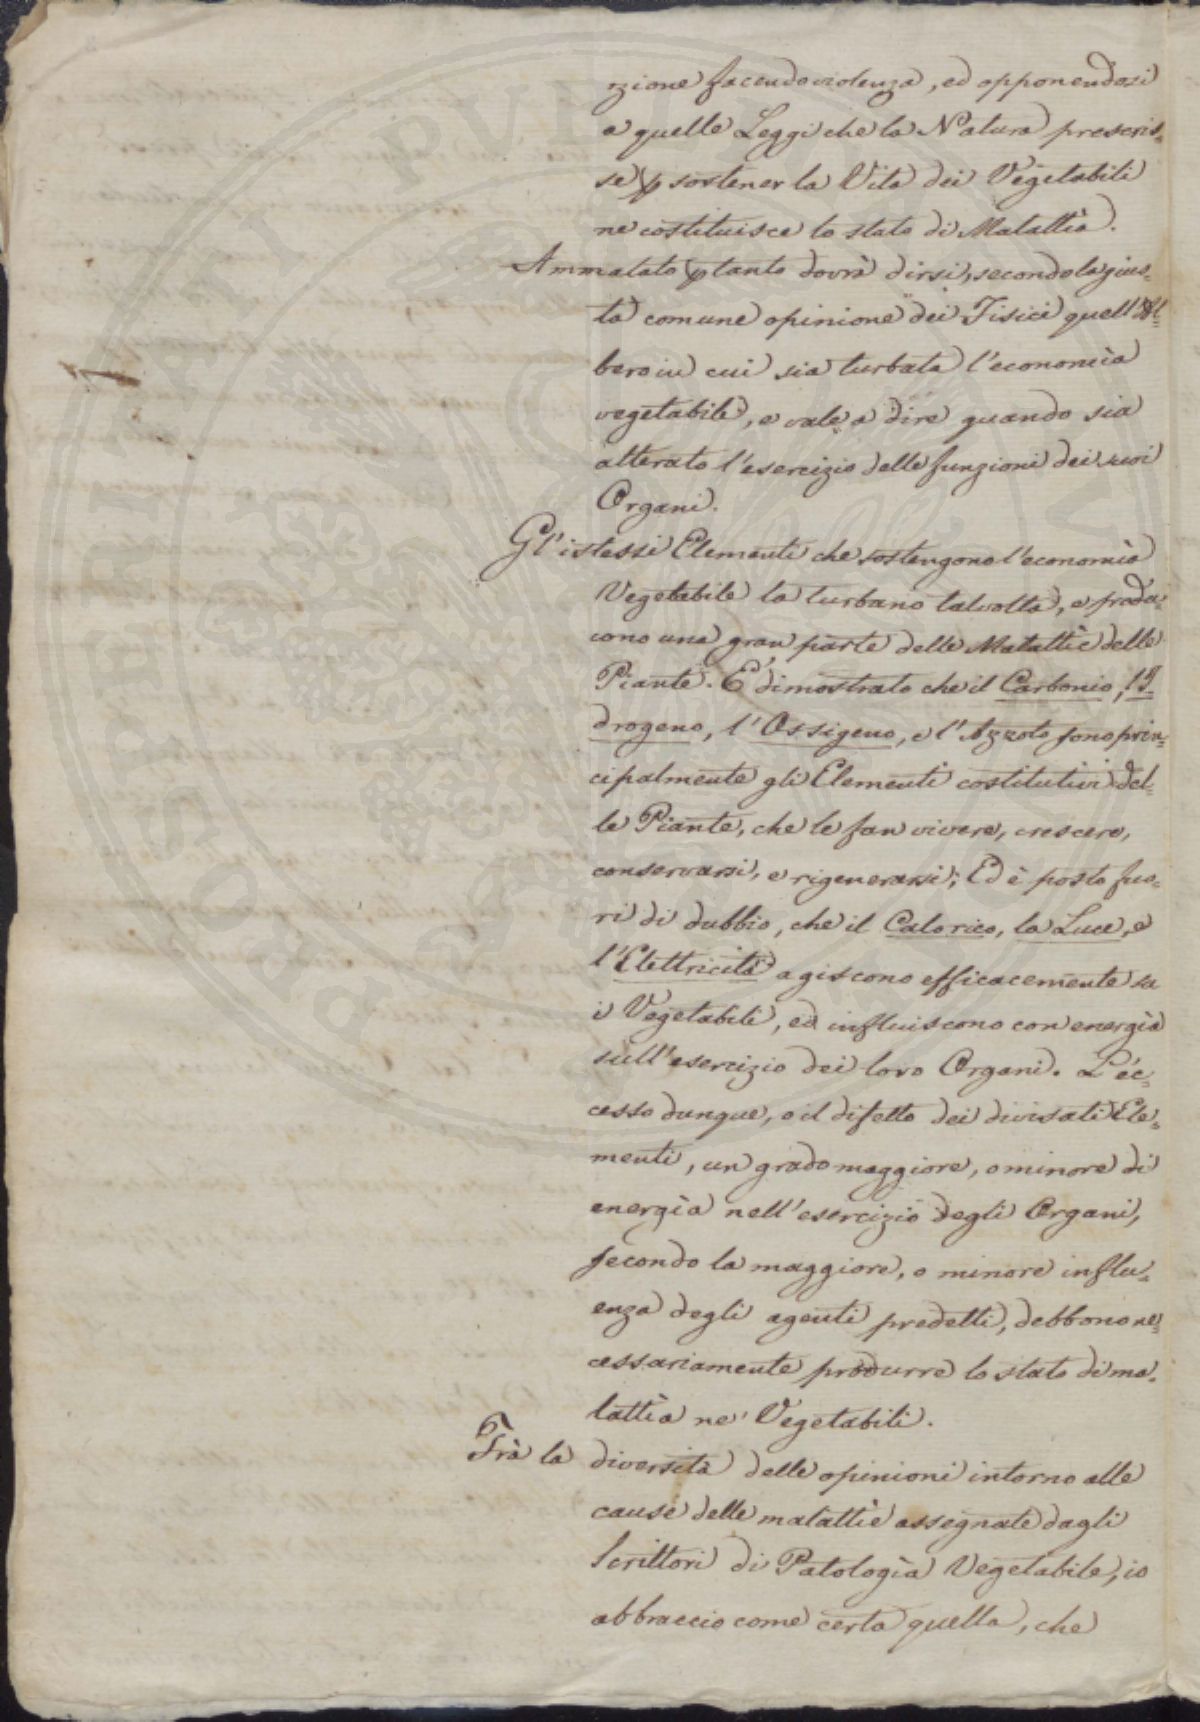 zione facendo violenza, ed opponendosi
a quelle Leggi che la Natura prescris=
se p sostener la Vita dei Vegetabili
ne costituisce lo stato di Malattìa.
Ammalato ptanto dovrà dirsi, secondo la gius=
ta comune opinione dei Fisici quell'Al=
bero in cui sia turbata l'economìa
vegetabile, e vale a dire quando sia
alterato l'esercizio delle funzioni dei suoi
Organi.
Gl'istessi Elementi che sostengono l'economìa
Vegetabile la turbano talvolta, e produ=
cono una gran parte delle Malattìe delle
Piante. E' dimostrato che il Carbonio, l'I=
drogeno, l'Ossigeno, e l'Azzoto sono prin=
cipalmente gli Elementi costitutivi del=
le Piante, che le fan vivere, crescere,
conservarsi, e rigenerarsi; Ed è posto fuo=
ri di dubbio, che il Calorico, la Luce, e
l'Elettricità agiscono efficacemente su
i Vegetabili, ed influiscono con energìa
sull'esercizio dei loro Organi. L'ec=
cesso dunque, o il difetto dei divisati Ele=
menti, un grado maggiore, o minore di
energìa nell'esercizio degli Organi,
secondo la maggiore, o minore influ=
enza degli agenti predetti, debbono ne=
cessariamente produrre lo stato di ma=
lattìa ne' Vegetabili.
Trà la diversità delle opinioni intorno alle
cause delle malattìe assegnate dagli
Scrittori di Patologìa Vegetabile, io
abbraccio come certa quella, che